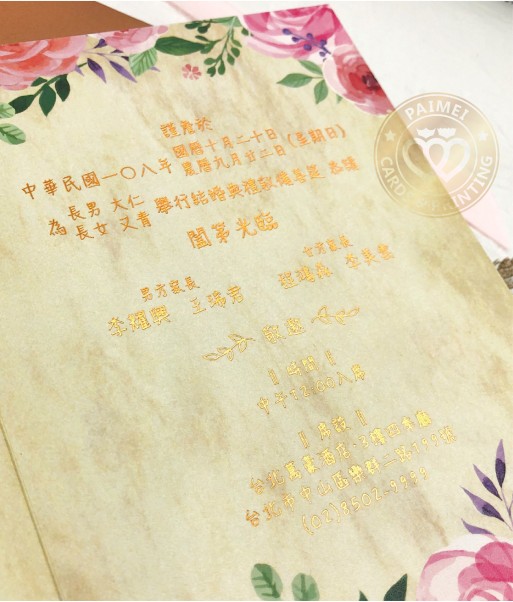 謹詹於
中華民國一〇八年 國曆十月二十日 農曆九月廿二日 (星期日)
為 長男 大仁 長女 又青 舉行結婚典禮敬備喜筵 恭請
闔第光臨
男方家長
女方家長
李耀興 王瑞君
敬邀
|| 時間 ||
中午12:30入席
|| 席設 ||
台北萬豪酒店
台北市中山區樂群二路199號
(02)8502-9999
PAIMEI
CARD PRINTING